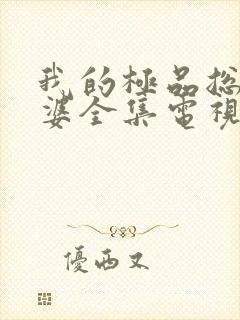 我的極品總
婆全集電視
優酉又